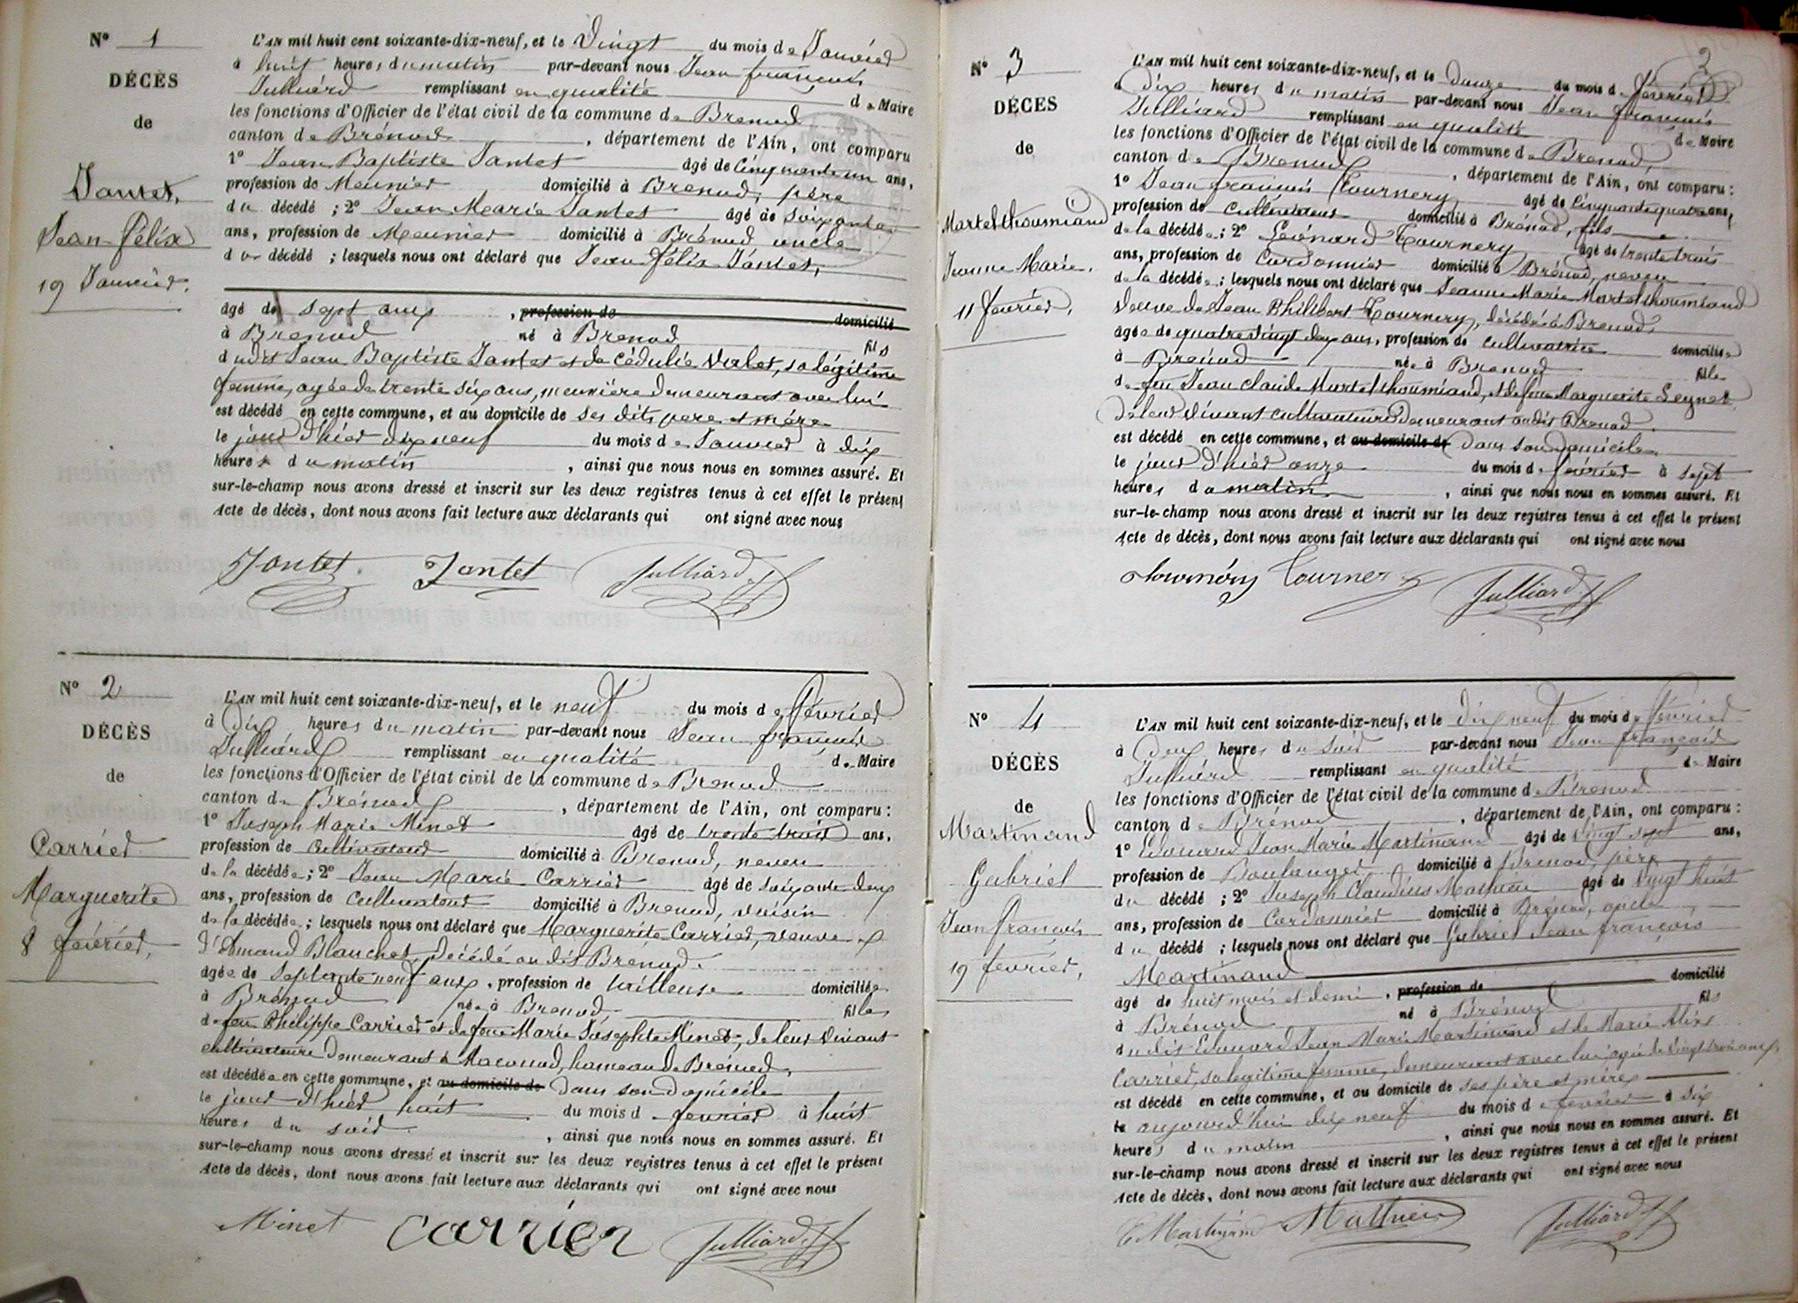 N° 1
DÉCÈS
de
Jantet,
Jean Félix
19 Janvier.
L'AN mil huit cent soixante-dix-neuf, et le Vingt du mois de Janvier
à huit heures du matin par-devant nous Jean françois
Julliard remplissant en qualité de Maire
les fonctions d'Officier de l'état civil de la commune de Brenod
canton de Brénod, département de l'Ain, ont comparu
1° Jean Baptiste Jantet âgé de Cinquante un ans,
profession de Meunier domicilié à Brenod, père
du décédé ; 2° Jean Marie Jantet âgé de soixante
ans, profession de Meunier domicilié à Brénod, oncle
du décédé ; lesquels nous ont déclaré que Jean félix Jantet,
âgé de sept ans, profession de domicilié
à Brenod né à Brenod fils
dudit Jean Baptiste Jantet et de Cédulie Valet, sa légitime
femme, agée de trente six ans, meunière demeurant avec lui
est décédé en cette commune, et au domicile de ses dits pere et mère
le jour d'hier dix neuf du mois de Janvier à dix
heures du matin, ainsi que nous nous en sommes assuré. Et
sur-le-champ nous avons dressé et inscrit sur les deux registres tenus à cet effet le présent
Acte de décès, dont nous avons fait lecture aux déclarants qui ont signé avec nous
Jantet. Jantet Julliard
N° 2
DÉCÈS
de
Carrier
Marguerite
8 février,
L'AN mil huit cent soixante-dix-neuf, et le neuf du mois de février
à Dix heures du matin par-devant nous Jean françois
Julliard remplissant en qualité de Maire
les fonctions d'Officier de l'état civil de la commune de Brenod
canton de Brénod, département de l'Ain, ont comparu :
1° Joseph Marie Minet âgé de trente trois ans,
profession de cultivateur domicilié à Brenod, neveu
de la décédée ; 2° Jean Marie Carrier âgé de soixante deux
ans, profession de cultivateur domicilié à Brenod, voisin
de la décédée ; lesquels nous ont déclaré que Marguerite Carrier, veuve
d' Blanchet, décédé audit Brenod.
âgée de septante neuf ans, profession de tailleuse domiciliée
à Brénod née à Brenod, fille
de feu Philippe Carrier et de feue Marie Josephte Minet, de leur vivant
cultivateurs demeurant à Macconod, hameau de Brénod,
est décédée en cette commune, et au domicile de Dans son domicile
le jour d'hier huit du mois de fevrier à huit
heures du soir, ainsi que nous nous en sommes assuré. Et
sur-le-champ nous avons dressé et inscrit sur les deux registres tenus à cet effet le présent
Acte de décès, dont nous avons fait lecture aux déclarants qui ont signé avec nous
Minet Carrier Julliard
2
N° 3
DÉCÈS
de
Martel thoumiand
Jeanne Marie.
11 février,
L'AN mil huit cent soixante-dix-neuf, et le Douze du mois de février
à Dix heures du matin par-devant nous Jean françois
Julliard remplissant en qualité de Maire
les fonctions d'Officier de l'état civil de la commune de Brenod
canton de Brenod, département de l'Ain, ont comparu :
1° Jean françois Tournery âgé de Cinquante quatre ans,
profession de cultivateur domicilié à Brénod, fils
de la décédée ; 2° Léonard Tournery âgé de trente trois
ans, profession de Cordonnier domicilié à Brénod, neveu
de la décédée ; lesquels nous ont déclaré que Jeanne Marie Martel thoumiand
veuve de Jean Philibert Tournery, décédé à Brenod,
âgée de quatre vingt deux ans, profession de cultivatrice domiciliée
à Brénod née à Brenod fille
de feu Jean claude Martel thoumiand, et de feue Marguerite Seynet
de leur vivant cultivateurs demeurant audit Brenod.
est décédé en cette commune, et au domicile de Dans son domicile
le jour d'hier onze du mois de février à sept
heures du matin, ainsi que nous nous en sommes assuré. Et
sur-le-champ nous avons dressé et inscrit sur les deux registres tenus à cet effet le présent
Acte de décès, dont nous avons fait lecture aux déclarants qui ont signé avec nous
Tournery Tournery Julliard
N° 4
DÉCÈS
de
Martinand
Gabriel
Jean françois
19 février,
L'AN mil huit cent soixante-dix-neuf, et le dix neuf du mois de février
à Deux heures du soir par-devant nous Jean françois
Julliard remplissant en qualité de Maire
les fonctions d'Officier de l'état civil de la commune de Brénod
canton de Brénod, département de l'Ain, ont comparu :
1° Edouard Jean Marie Martinand âgé de vingt sept ans,
profession de Boulanger domicilié à Brenod, père
du décédé ; 2° Joseph Claudius Mathieu âgé de vingt huit
ans, profession de Cordonnier domicilié à Brénod, oncle
du décédé ; lesquels nous ont déclaré que Gabriel Jean françois
Martinand
âgé de huit mois et demi, profession de domicilié
à Brénod né à Brénod fils
dudit Edouard Jean Marie Martinand et de Marie Alix
Carrier, sa légitime femme, demeurant avec lui agée de vingt trois ans,
est décédé en cette commune, et au domicile de ses père et mère
le aujourd'hui dix neuf du mois de février à six
heures du matin, ainsi que nous nous en sommes assuré. Et
sur-le-champ nous avons dressé et inscrit sur les deux registres tenus à cet effet le présent
Acte de décès, dont nous avons fait lecture aux déclarants qui ont signé avec nous
E Martinand Mathieu Julliard